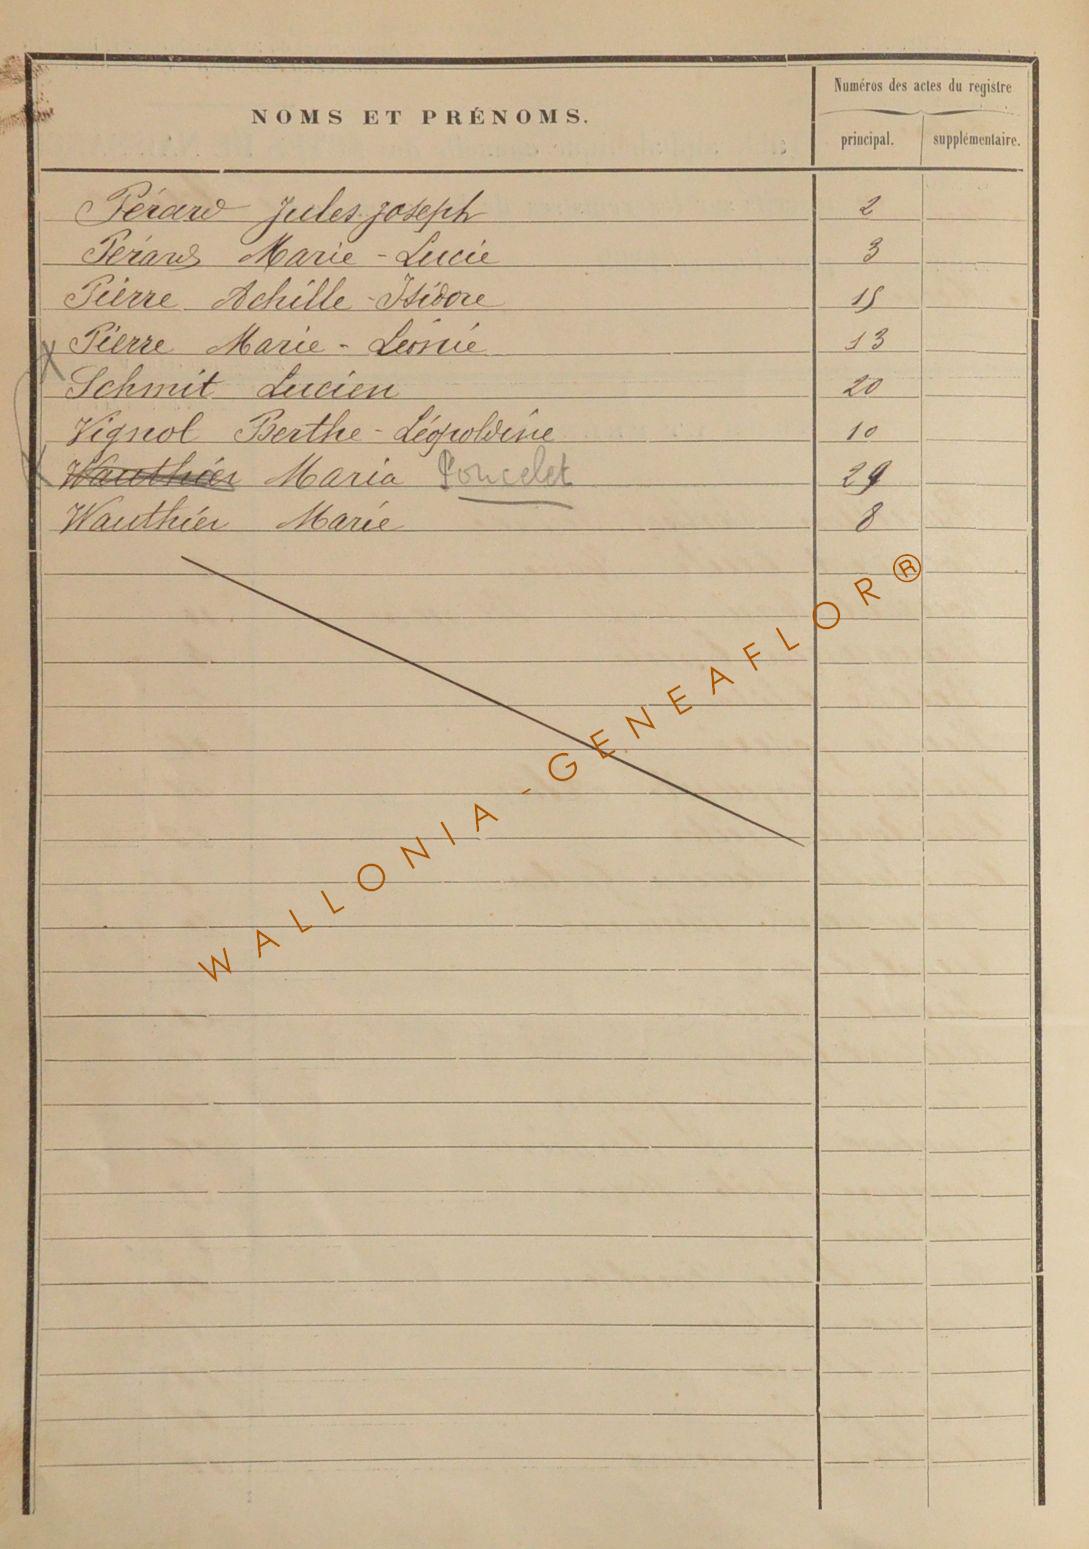 NOMS ET PRÉNOMS.
Numéros des actes du registre
principal. supplémentaire.
Pérard Jules Joseph 2
Pérard Marie - Lucie 3
Pierre Achille - Isidore 15
Pierre Marie - Léonie 13
Schmit Lucien 20
Vignol Berthe - Léopoldine 10
Wauthier Maria Poncelet 29
Wauthier Marie 8
WALLONIA - GENEAFLOR®